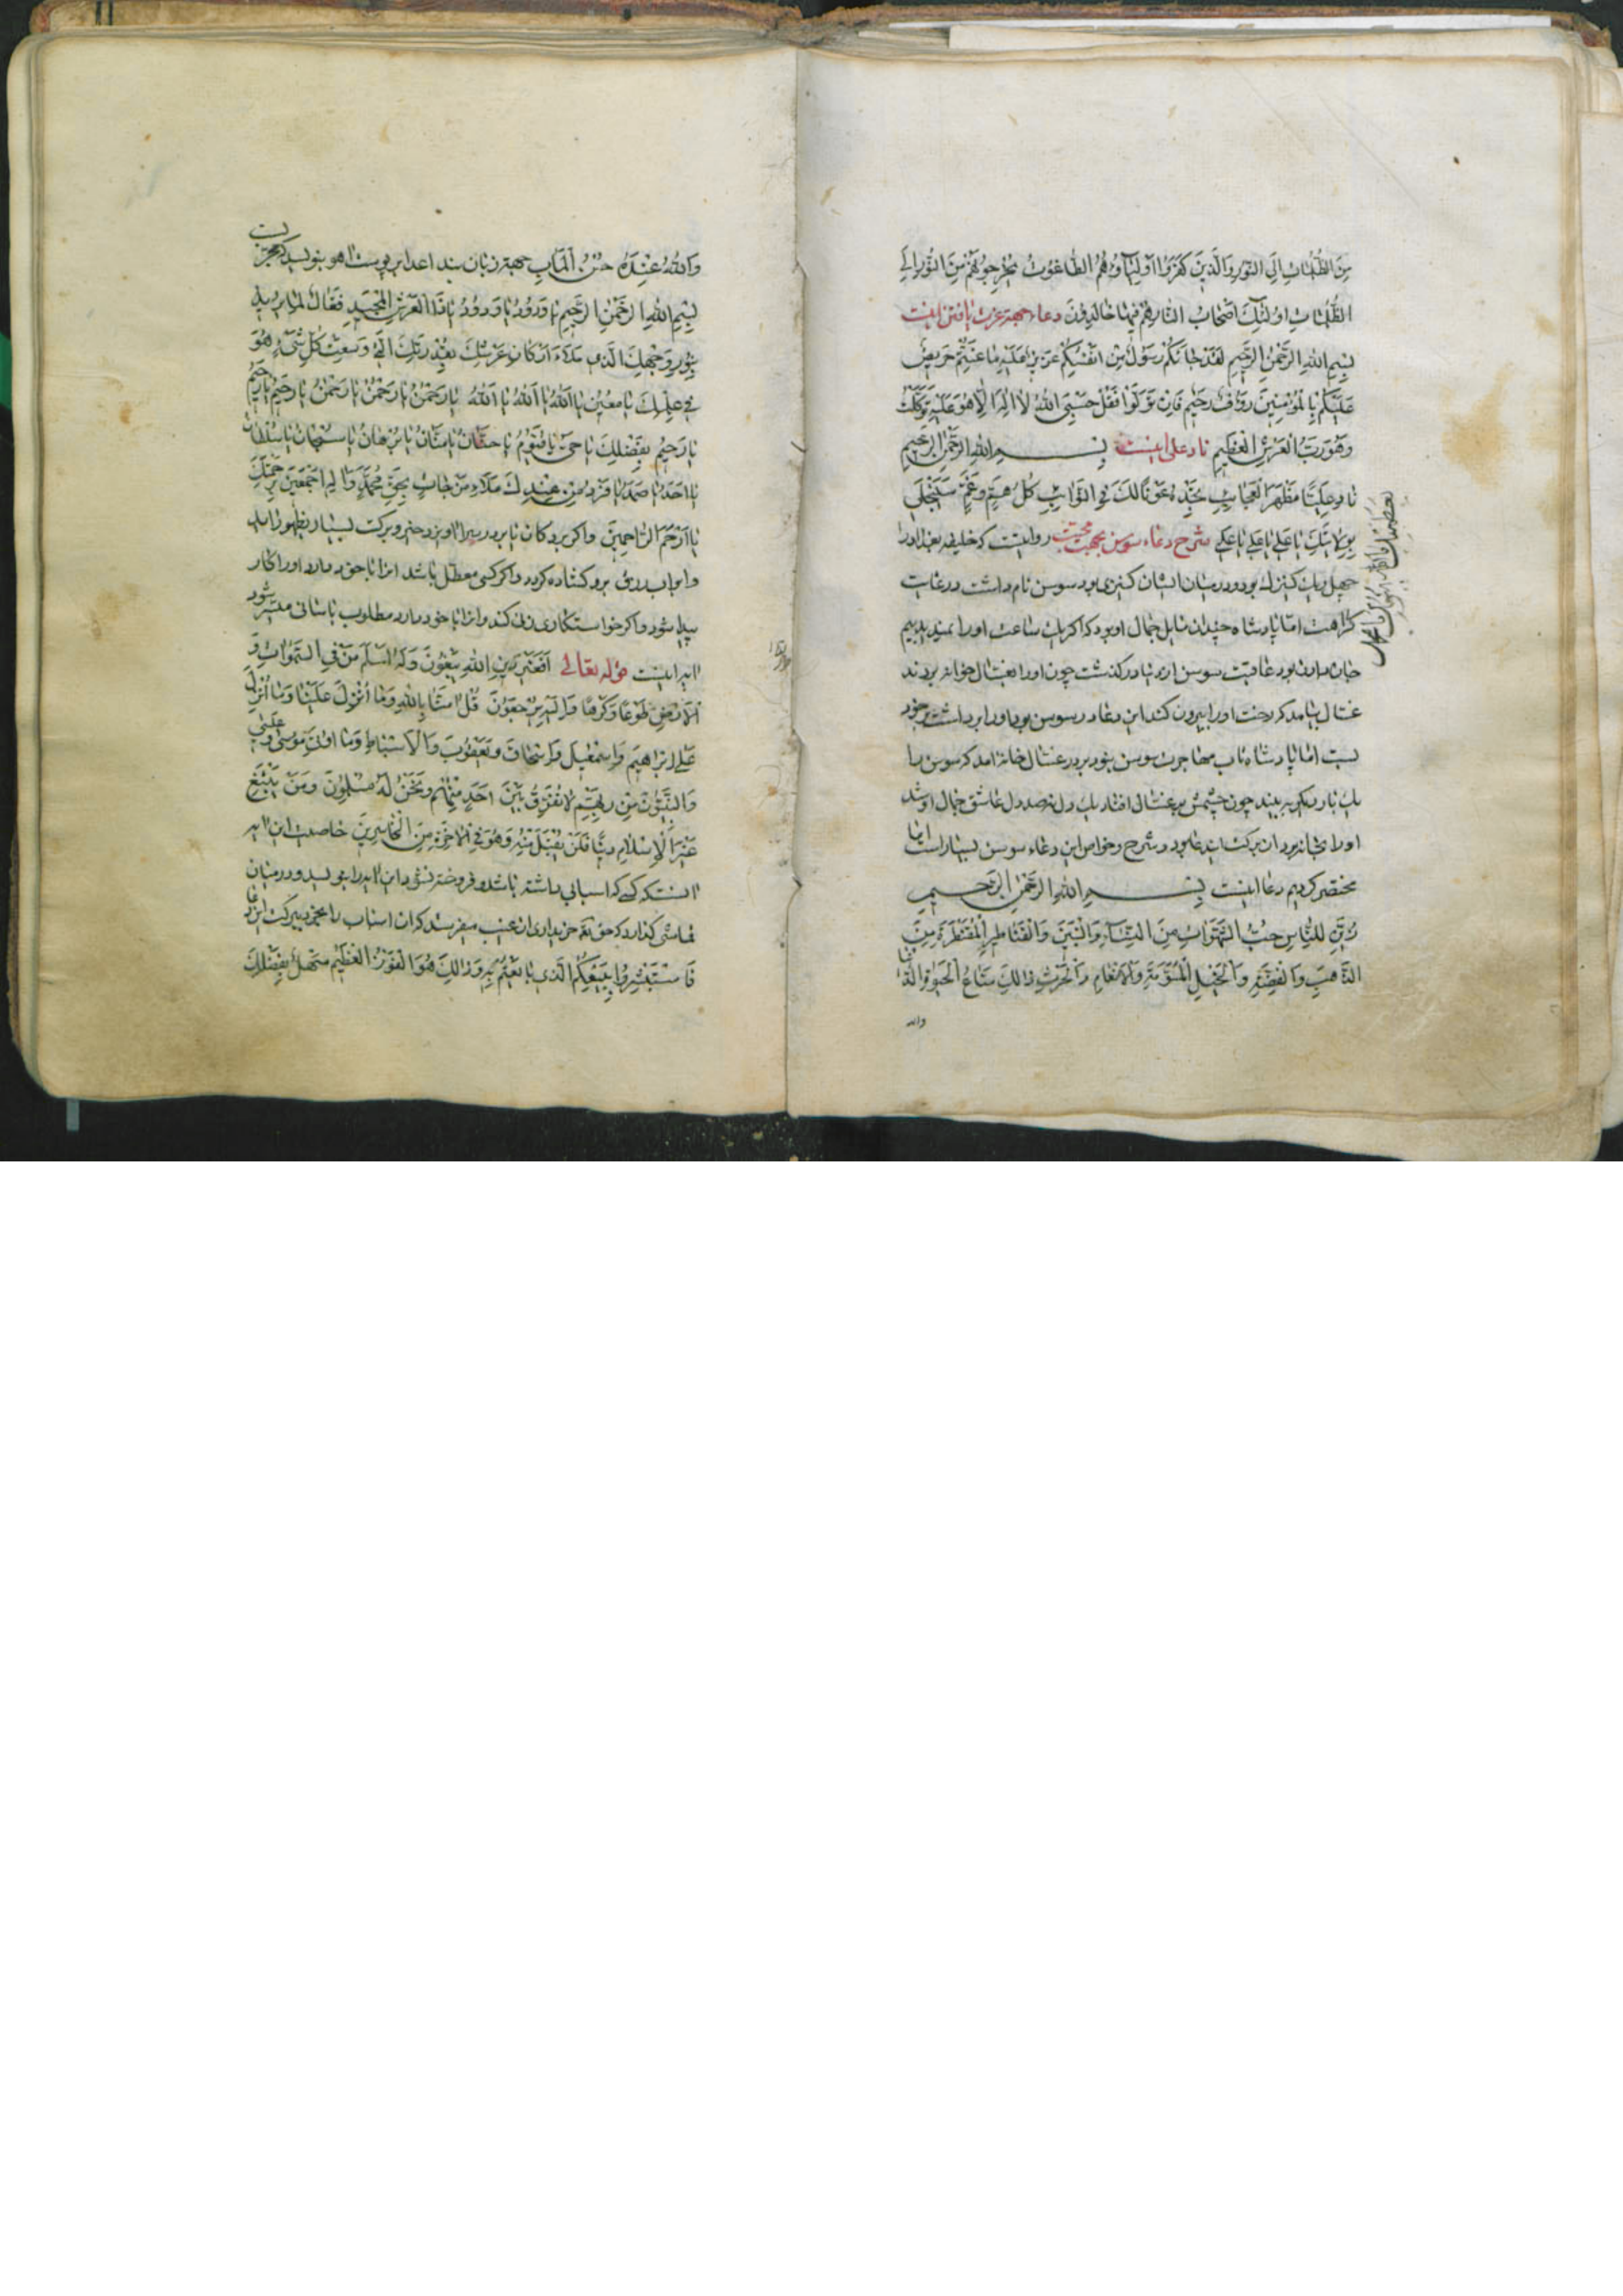 مِنَ الظُّلُمَاتِ اِلَى النُّورِ وَالَّذِينَ كَفَرُوا اَوْلِيَاؤُهُمُ الطَّاغُوتُ يُخْرِجُونَهُمْ مِنَ النُّورِ اِلَى
الظُّلُمَاتِ اُولٰئِكَ اَصْحَابُ النَّارِ هُمْ فِيهَا خَالِدُونَ دعاء جهة عزت یافتن اینست
بِسْمِ اللهِ الرَّحْمٰنِ الرَّحِيمِ لَقَدْ جَاءَكُمْ رَسُولٌ مِنْ اَنْفُسِكُمْ عَزِيزٌ عَلَيْهِ مَا عَنِتُّمْ حَرِيصٌ
عَلَيْكُمْ بِالْمُؤْمِنِينَ رَؤُفٌ رَحِيمٌ فَاِنْ تَوَلَّوْا فَقُلْ حَسْبِيَ اللهُ لَا اِلٰهَ اِلَّا هُوَ عَلَيْهِ تَوَكَّلْتُ
وَهُوَ رَبُّ الْعَرْشِ الْعَظِيمِ ناد علی اینست بِسْمِ اللهِ الرَّحْمٰنِ الرَّحِيمِ
نَادِ عَلِيًّا مَظْهَرَ الْعَجَايِبِ تَجِدْهُ عَوْنًا لَكَ فِي النَّوَايِبِ كُلُّ هَمٍّ وَغَمٍّ سَيَنْجَلِي
بِوِلَايَتِكَ يَا عَلِيُّ يَا عَلِيُّ يَا عَلِيُّ شرح دعاء سوسن بجهت محبت روایتست که خلیفه بغداد را
چهل و یک کنیزک بود و در میان ایشان کنیزی بود سوسن نام داشت در غایت
کراهت اما پادشاه چندان مایل جمال او بود که اکر یک ساعت اورا ندیدی بی
بود عاقبت سوسن از دنیا درکذشت چون اورا بغسال خانه بردند
غسال بیامد که رخت اورا بیرون کند این دعا در سوسن بود اورا برداشت بر خود
بست اما پادشاه تاب مهاجرت سوسن نبود بر در غسال خانه امد که سوسن را
یک بار دیکر به بیند چون چشمش بر غسال افتاد بیک دل نه صد دل عاشق جمال او شد
اورا بخانه برد ان برکت این دعا بود و شرح و خواص این دعاء سوسن بسیار است اما
مختصر کردیم دعا اینست بِسْمِ اللهِ الرَّحْمٰنِ الرَّحِيمِ
زُيِّنَ لِلنَّاسِ حُبُّ الشَّهَوَاتِ مِنَ النِّسَاءِ وَالْبَنِينَ وَالْقَنَاطِيرِ الْمُقَنْطَرَةِ مِنَ
الذَّهَبِ وَالْفِضَّةِ وَالْخَيْلِ الْمُسَوَّمَةِ وَالْاَنْعَامِ وَالْحَرْثِ ذَالِكَ مَتَاعُ الْحَيٰوةِ الدُّنْيَا
والله
وَاللهُ عِنْدَهُ حُسْنُ الْمَآبِ جهة زبان بند اعدا بر پوست اهو بنویسد که مجربست
بِسْمِ اللهِ الرَّحْمٰنِ الرَّحِيمِ يَا وَدُودُ يَا وَدُودُ يَا ذَا الْعَرْشِ الْمَجِيدِ فَعَّالٌ لِمَا يُرِيدُ
بِنُورِ وَجْهِكَ الَّذِي مَلَأَ اَرْكَانَ عَرْشِكَ بِقُدْرَتِكَ الَّتِي وَسِعَتْ كُلَّ شَيْءٍ هُوَ
فِي عِلْمِكَ يَا مُعِينُ يَا اَللهُ يَا اَللهُ يَا اَللهُ يَا رَحْمٰنُ يَا رَحْمٰنُ يَا رَحْمٰنُ يَا رَحِيمُ يَا رَحِيمُ
يَا رَحِيمُ بِفَضْلِكَ يَا حَيُّ يَا قَيُّومُ يَا حَنَّانُ يَا مَنَّانُ يَا بُرْهَانُ يَا سُبْحَانُ يَا سُلْطَانُ
يَا اَحَدُ يَا صَمَدُ يَا فَرْدُ بِحَقِّ مُحَمَّدٍ وَآلِهِ اَجْمَعِينَ بِرَحْمَتِكَ
يَا اَرْحَمَ الرَّاحِمِينَ و اکر بر دکان یا بر در سرا اویزد خیر و برکت بسیار بظهور اید
و ابواب رزق برو کشاده کردد و اکر کسی معطل باشد انرا با خود دارد اورا کار
پیدا شود و اکر خواستکاری زن کند و انرا با خود دارد مطلوب باسانی میسر شود
ایه اینست قوله تعالی اَفَغَيْرَ دِينِ اللهِ يَبْغُونَ وَلَهُ اَسْلَمَ مَنْ فِي السَّمٰوَاتِ وَ
الْاَرْضِ طَوْعًا وَكَرْهًا وَاِلَيْهِ يُرْجَعُونَ قُلْ آمَنَّا بِاللهِ وَمَا اُنْزِلَ عَلَيْنَا وَمَا اُنْزِلَ
عَلٰى اِبْرَاهِيمَ وَاِسْمٰعِيلَ وَاِسْحَاقَ وَيَعْقُوبَ وَالْاَسْبَاطِ وَمَا اُوتِيَ مُوسٰى وَعِيسٰى
وَالنَّبِيُّونَ مِنْ رَبِّهِمْ لَا نُفَرِّقُ بَيْنَ اَحَدٍ مِنْهُمْ وَنَحْنُ لَهُ مُسْلِمُونَ وَمَنْ يَبْتَغِ
غَيْرَ الْاِسْلَامِ دِينًا فَلَنْ يُقْبَلَ مِنْهُ وَهُوَ فِي الْاٰخِرَةِ مِنَ الْخَاسِرِينَ خاصیت این ایه
انست که کسی که اسبابی داشته باشد و فروخته نشود این ایه را بنویسد و در میان
قماش کذارد که حق تعه خریداری از غیب میفرستد که ان اسباب را بخرد ببرکت این دعا
فَاسْتَبْشِرُوا بِبَيْعِكُمُ الَّذِي بَايَعْتُمْ بِهِ وَذَالِكَ هُوَ الْفَوْزُ الْعَظِيمُ بِفَضْلِكَ